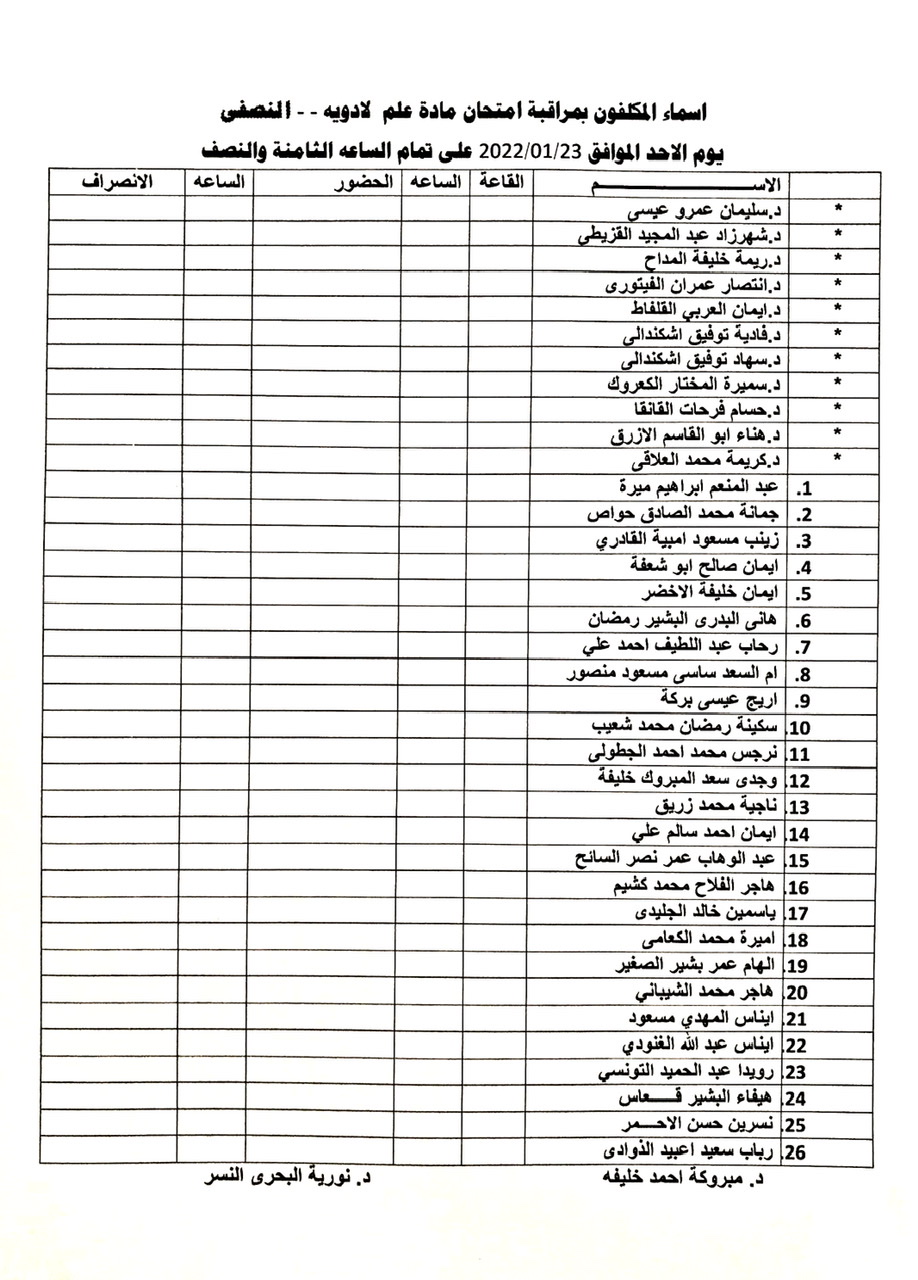 اسماء المكلفون بمراقبة امتحان مادة علم لادويه - - النصفى
يوم الاحد الموافق 2022/01/23 على تمام الساعه الثامنة والنصف
الاســـــــــــم القاعة الساعه الحضور الساعه الانصراف
* د.سليمان عمرو عيسى
* د.شهرزاد عبد المجيد القزيطي
* د.ريمة خليفة المداح
* د.انتصار عمران الفيتورى
* د.ايمان العربي القلفاط
* د.فادية توفيق اشكندالى
* د.سهاد توفيق اشكندالى
* د.سميرة المختار الكعروك
* د.حسام فرحات القانقا
* د.هناء ابو القاسم الازرق
* د.كريمة محمد العلاقى
1. عبد المنعم ابراهيم ميرة
2. جمانة محمد الصادق حواص
3. زينب مسعود امبية القادري
4. ايمان صالح ابو شعفة
5. ايمان خليفة الاخضر
6. هانى البدرى البشير رمضان
7. رحاب عبد اللطيف احمد علي
8. ام السعد ساسى مسعود منصور
9. اريج عيسى بركة
10. سكينة رمضان محمد شعيب
11. نرجس محمد احمد الجطولى
12. وجدى سعد المبروك خليفة
13. ناجية محمد زريق
14. ايمان احمد سالم علي
15. عبد الوهاب عمر نصر السائح
16. هاجر الفلاح محمد كشيم
17. ياسمين خالد الجليدى
18. اميرة محمد الكعامى
19. الهام عمر بشير الصغير
20. هاجر محمد الشيباني
21. ايناس المهدي مسعود
22. ايناس عبد الله الغنودي
23. رويدا عبد الحميد التونسي
24. هيفاء البشير قـــعاس
25. نسرين حسن الاحــمر
26. رباب سعيد اعبيد الذوادى
د. مبروكة احمد خليفه د. نورية البحرى النسر